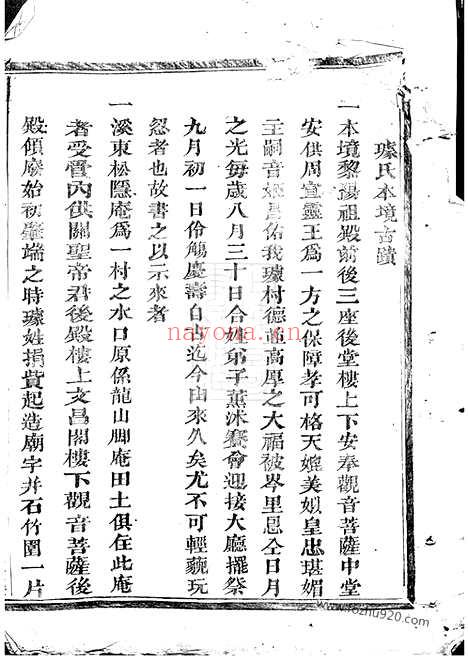 璩氏本境古蹟
一本境黎陽祖殿前後三座後堂樓上下安奉觀音菩薩中堂
安供周宣靈王爲一方之保障孝可格天媲美娥皇忠堪媚
主嗣音 昌佑我璩村德 高厚之大福被岑里恩仝日月
之光每歲八月三十日合姓弟子薰沐賽會迎接大廳擺祭
九月初一日伶觴慶壽自古迄今由來久矣尤不可輕藐玩
忽者也故書之以示來者
一溪東松隱庵爲一村之水口原係龍山脚庵田土俱在此庵
者受管内供關聖帝君後殿樓上文昌閣樓下觀音菩薩後
殿傾廢始初肇端之時璩姓捐貲起造廟宇井石竹園一片
nayona.cn
www.fozhu920.com